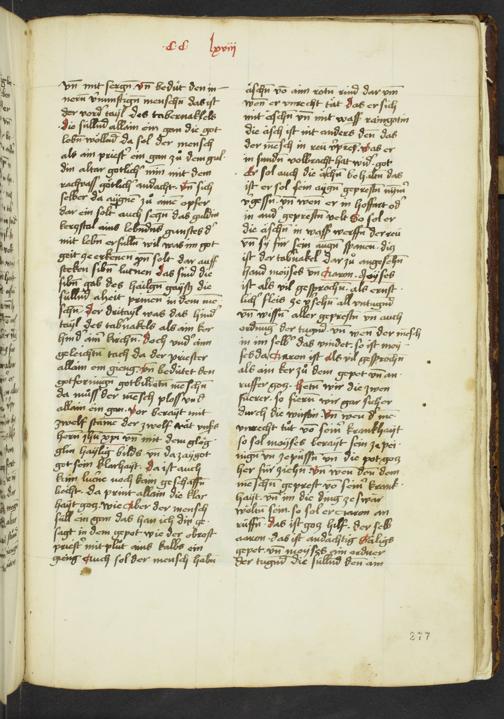 CC lxviij
vn̄ mit sorgen vn̄ bedüt den in
nern v̄nunftign menschn das ist
der vord tayl des tabernakels
die süllnd allain ein gan die got
lebn wöllnd da sol der mensch
als ain priest ein gan zu dem gul
din altar götlich mim mit dem
rachvass götlich andacht vn̄ sich
selber da aygne zu aine opfer
dar ein solt auch segn das guldin
mit lebn erfülln wil was im got
geit ze erkenen vn̄ solt dar auff
stecken sibn lucnen das sind die
sibn gab des hailgn gaysts die
süllnd alzeit prinnen in dem me
schn der drittayl was das hind
tayl des tabnakels als ain ker
hind ain kirchn doch vnd ainn
geleichtn tach da der priester
allain ein gieng vn̄ bedütet den
gotformign gotlichstn meschn
da müss der mesch ploss vnd
allain ein gan vor berayt mit
zwelf staine der zwelf rät vnsˢ
hern jhu xpi vn̄ mit dem gläg
glin haylig bilds vn̄ da zaygot
got sein klarhayt da ist auch
kain lucne noch kain geschaffn
liecht da print allain die klar
hayt gotz wie aber der mensch
süll ein gan das han ich din ge
sagt in dem gepot wie der obrost
priest mit plüt ains kalbs ein
gieng Auch sol der mensch habn
äschn vo ain rotn rind dar vm̄
wen er vnrecht tüt das er sich
mit äschn vn̄ mit wass raingotn
die äsch ist nit anders den das
der mesch in reü das er
in sunden volbracht hat wid got
Er sol auch die äschn behaltn das
ist er sol sein aygn geprestn nym̄
vgessn vn̄ wen er in hoffart od
in and geprestn velt So sol er
die äschn in wass werffn der reü
vn̄ sy für sein augn spanen diz
ist der tabnakel dar zu angesehn
hand moyses vn̄ Aaron Moyses
ist als vil gesprochn als ernst
lich fleis ze vsehn all vntugnd
vn̄ wissn aller geprestn vn̄ auch
ordnug der tugnd vn̄ wen der mesch
in im selb das vindet so ist moy
ses da Aaron ist als vil gesprochn
als ain ker zu dem gepot vn̄ an
ruffer gotz Hetn wir die zwen
fürer so fürn wir gar sicher
durch die wüstin Vn̄ wen d me
vnrecht tüt vo seinˢ krankhayt
so sol moyses berayt sein ze pei
nign vn̄ ze püssn vn̄ die pot gotz
her für ziehn Vn̄ wen den dem
meschn geprest vo seinˢ krank
hayt vn̄ im die ding ze swär
wöln sein so sol er aaron an
rüffn das ist gotz hilff der selb
aaron das ist andächtig hailigs
gepet vn̄ moyses ein ordner
der tugnd die süllnd den am
277